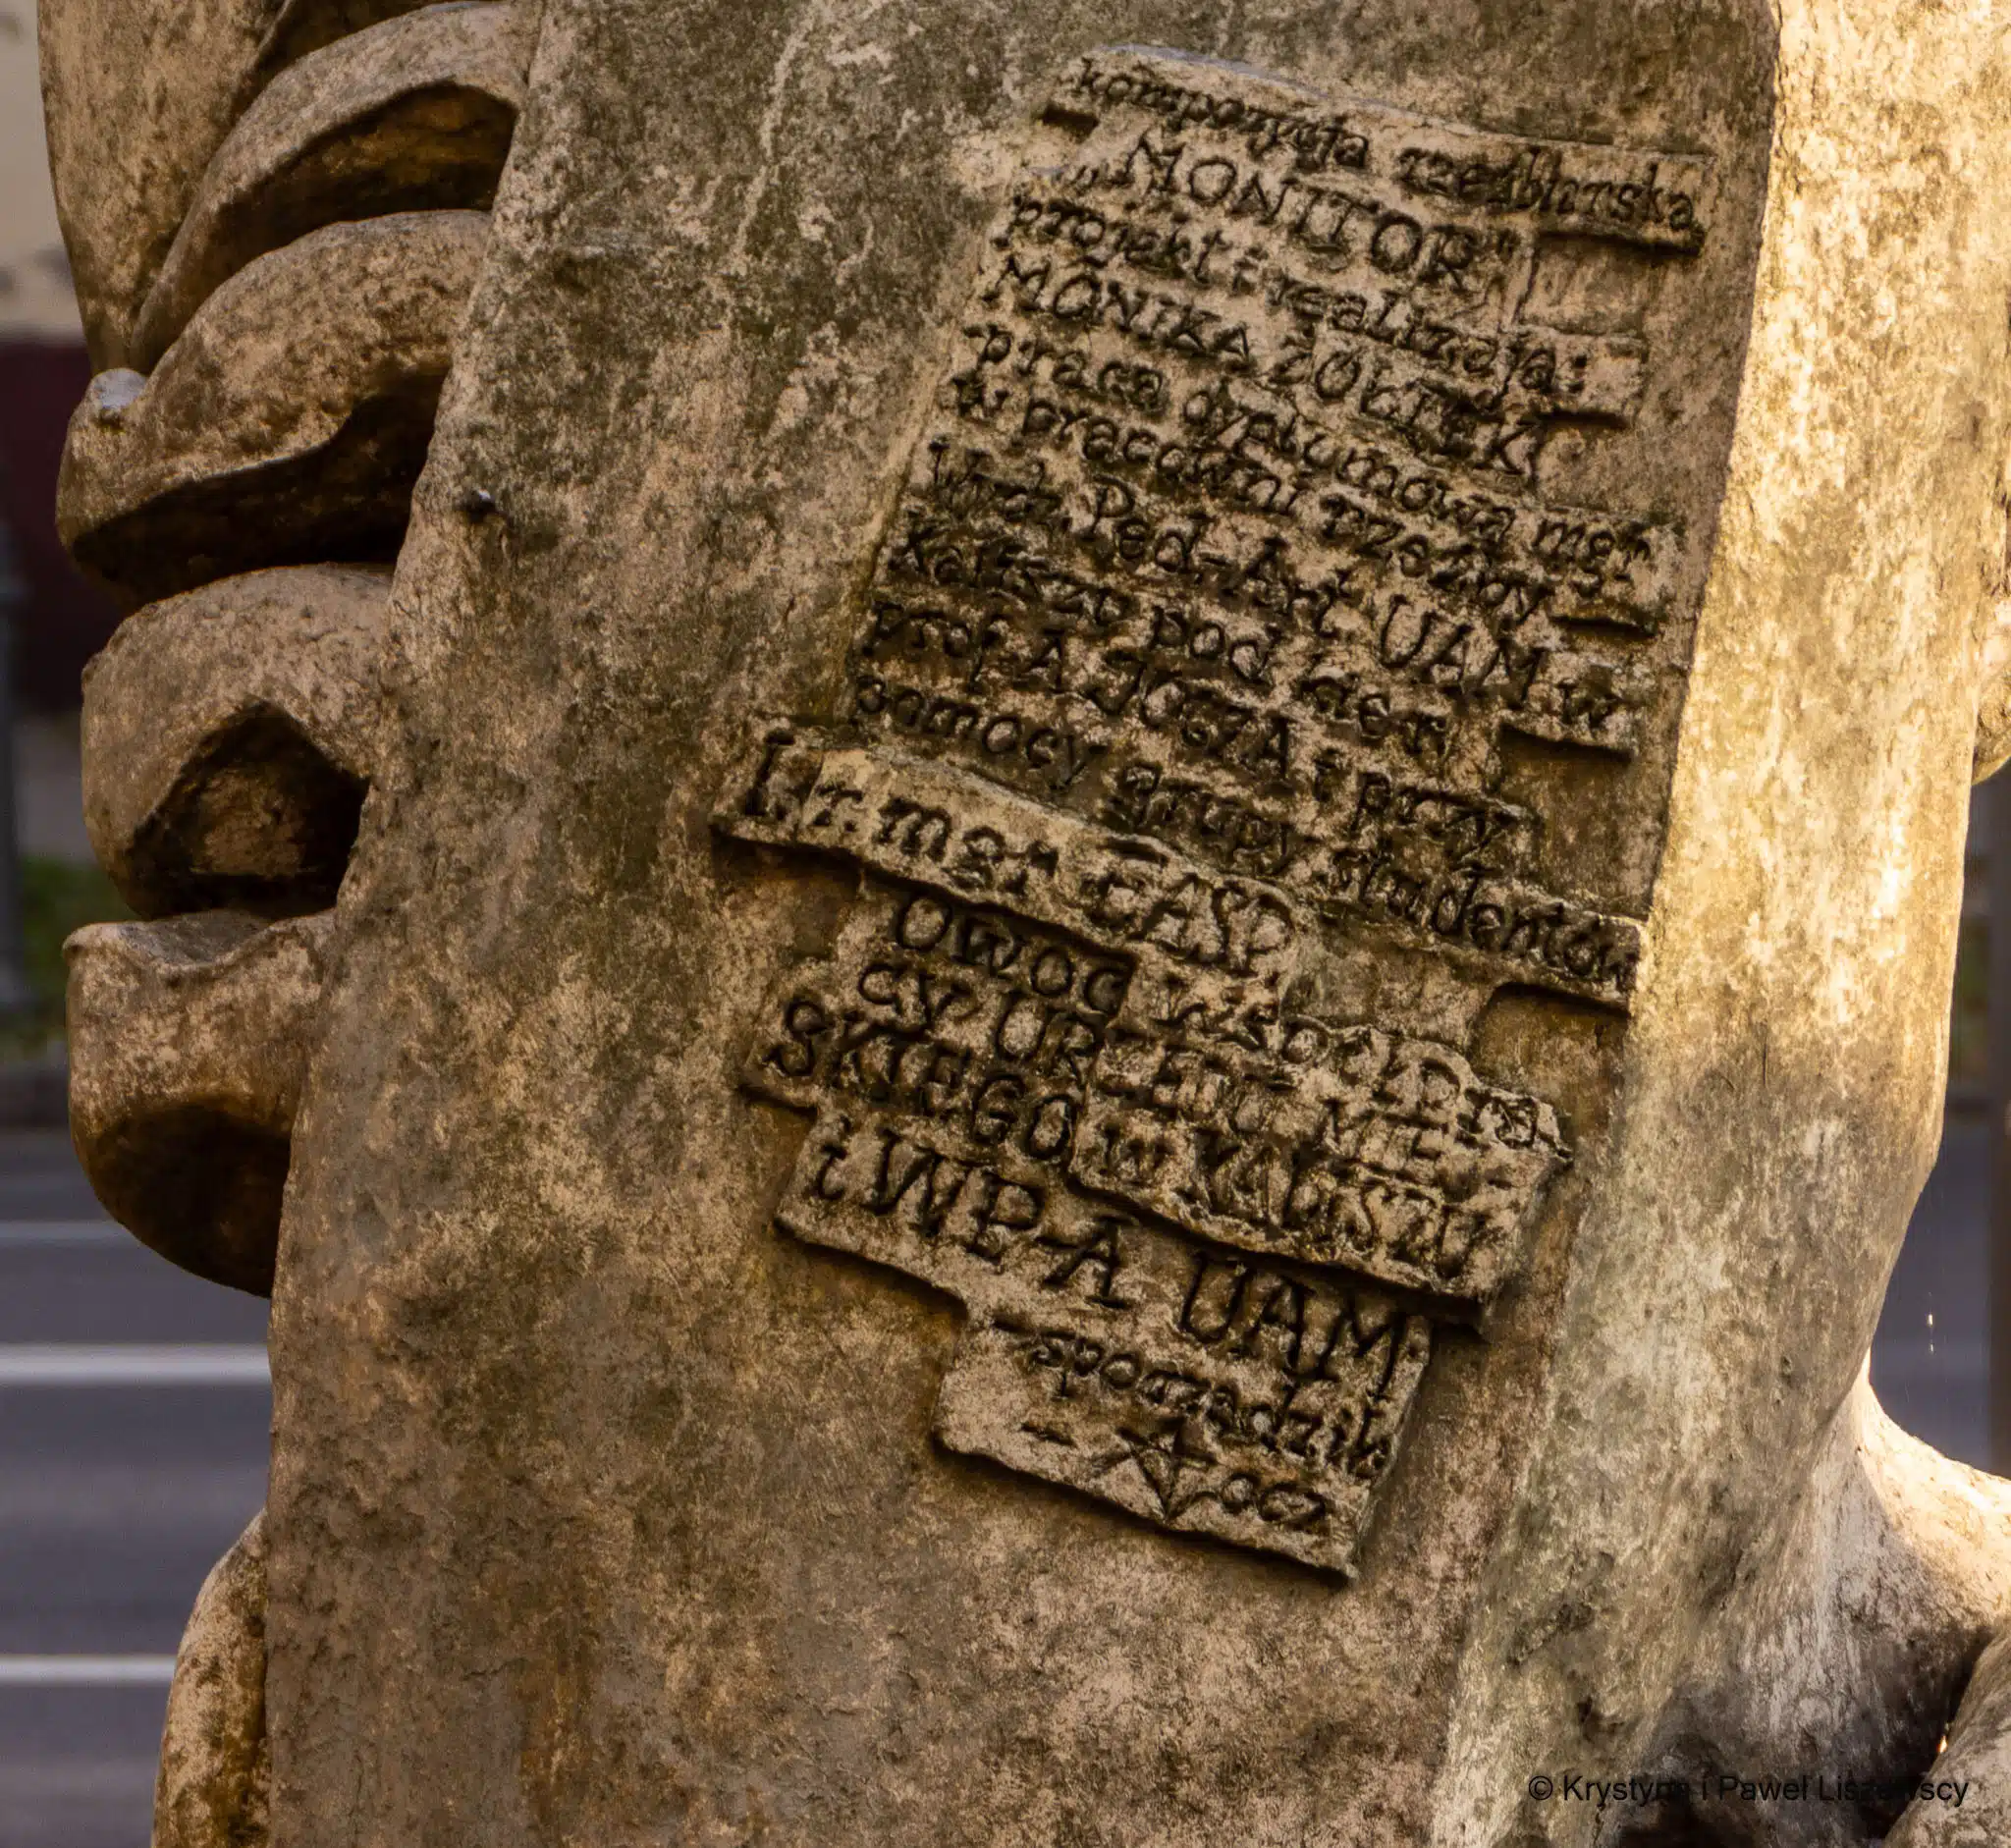 kompozycja rzeźbiarska
„MONITOR"
projekt i realizacja:
MONIKA ŻÓŁTEK
praca dyplomowa mgr
w pracowni rzeźby
Wydz. Ped-Art UAM w
Kaliszu pod kier
prof A JOCZA i przy
pomocy grupy studentów
I r. mgr EASP
OWOC WSPÓŁPRA-
CY URZĘDU MIEJ-
SKIEGO w KALISZU
i WP-A UAM
-sporządził
- JOCZ
© Krystyna i Paweł Liszewscy